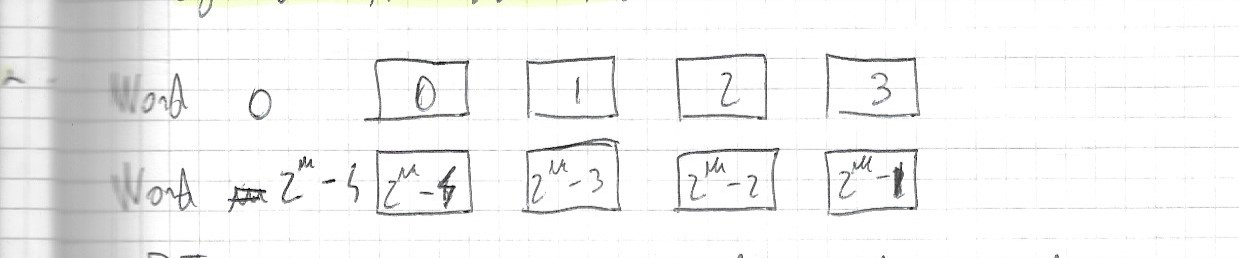 Word 0 0 1 2 3
Word 2^m - 4 2^m-4 2^m-3 2^m-2 2^m-1